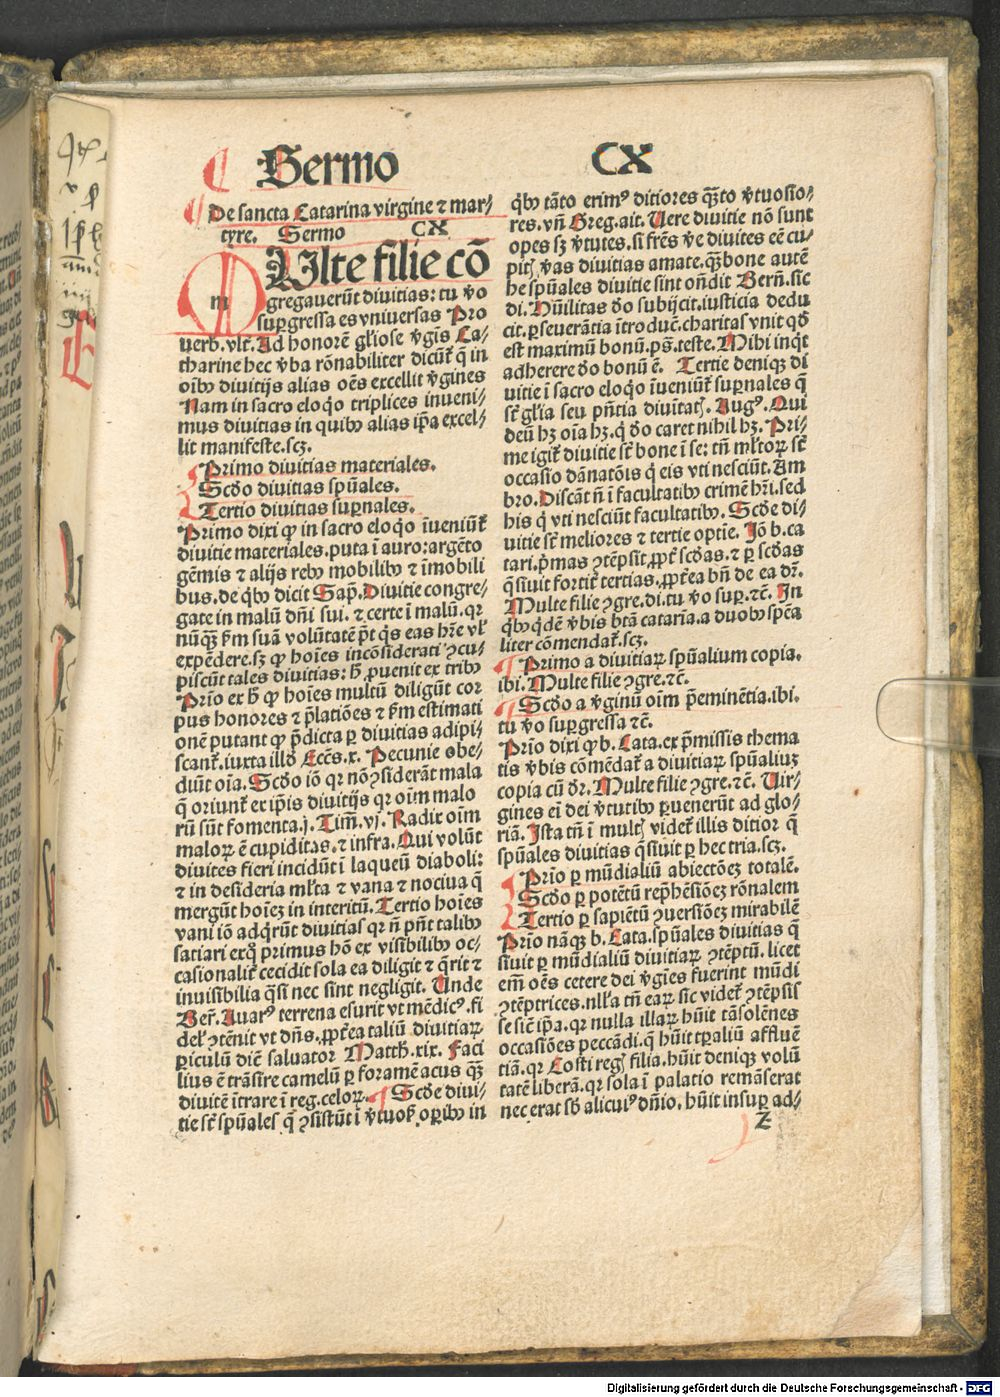 Sermo CX
De sancta Catarina virgine ⁊ mar-
tyre. Sermo CX
MUlte filie cō
gregaverūt divitias: tu v̄o
suꝑgressa es vniversas Pro
verb. vlt. Ad honorē gl̄iose v̄gīs Ca-
tharine hec v̄ba rōnabiliter dicūt᷑ q̄ in
oīb⁹ divitijs alias oēs excellit v̄gines
Nam in sacro eloq̄o triplices inveni-
mus divitias in quib⁹ alias ip̄a excel-
lit manifeste.scꝫ.
Primo divitias materiales.
Scd̄o divitias sp̄uales.
Tertio divitias suꝑnales.
Primo dixi ꝙ in sacro eloq̄o īveniūt᷑
divitie materiales. puta ī auro: argēto
gēmis ⁊ alijs reb⁹ mobilib⁹ ⁊ īmobili
bus. de q̄b⁹ dicit Sap̄. Divitie congre-
gate in malū dn̄i sui. ⁊ certe ī malū. qꝛ
nūq̄ꝫ s̄m suā volūtatē p̄t q̄s eas hr̄e vl̓
expēdere. sꝫ ꝙ hoīes incōsiderati ꝯcu-
piscūt tales divitias: h̄ ꝓuenit ex trib⁹
Pr̄io ex h̄ ꝙ hoīes multū diligūt cor
pus honores ⁊ p̄latiōes ⁊ s̄m estimati
onē putant ꝙ p̄dicta ꝑ divitias adipi-
scant᷑. iuxta illd̓ Ecc̄s. x. Pecunie obe-
diūt oīa. Scd̄o iō qꝛ nō ꝯsiderāt mala
q̄ oriunt᷑ ex ip̄is divitijs qꝛ oīm malo
rū sūt fomenta. j. Tim̄. vj. Radix oīm
maloꝝ ē cupiditas. ⁊ infra. Qui volūt
divites fieri incidūt ī laqueū diaboli:
⁊ in desideria ml̓ta ⁊ vana ⁊ nociva q̄
mergūt hoīeꝫ in interitū. Tertio hoīes
vani iō adq̄rūt divitias qꝛ n̄ pn̄t talib⁹
satiari exq̄ primus hō ex visibilib⁹ oc-
casionalit᷑ cecidit sola ea diligit ⁊ q̄rit ⁊
invisibilia q̄si nec sint negligit. Unde
Ber̄. Auar⁹ terrena esurit vt mēdic⁹. fi
del̓ ꝯtēnit vt dn̄s. ꝓpt̄ea taliū divitiaꝝ
ꝑiculū diē salvator Matth̄. xix. Faci
lius ē trāsire camelū ꝑ foramē acus q̄ꝫ
divitē ītrare ī reg. celoꝝ. Scd̄e divi-
tie st̄ sp̄uales q̄ ꝯsistūt ī v̄tuos̓ oꝑib⁹ in
q̄b⁹ tāto erim⁹ ditiores q̄ꝫto v̄tuosio-
res. vn̄ Greg. ait. Uere divitie nō sunt
opes sꝫ v̄tutes. si fr̄es v̄e divites eē cu-
pitꝭ v̄as divitias amate. q̄ꝫ bone autē
he sp̄uales divitie sint on̄dit Bern̄. sic
di. Hūilitas do subijcit. iusticia dedu
cit. ꝑseverātia ītro duc̄. charitas vnit qd̓
est maximū bonū. ps̄. teste. Mihi inq̄t
adherere do bonū ē. Tertie deniq̄ꝫ di
vitie ī sacro eloq̄o īveniūt᷑ suꝑnales q̄
st̄ gl̄ia seu pn̄tia divitatꝭ. Aug⁹. Qui
deū hꝫ oīa hꝫ. q̄ do caret nihil hꝫ. Pri-
me igit᷑ divitie st̄ bone ī se: tn̄ ml̓toꝝ st̄
occasio dānatōis q̄ eis vti nesciūt. Am
bro. Discāt n̄ ī facultatib⁹ crimē hr̄i. sed
his q̄ vti nesciūt facultatib⁹. Scd̄e di-
vitie st̄ meliores ⁊ tertie optie. Iō b. ca
tari. p̄mas ꝯtēpsit. ꝓpt̄ scd̄as. ⁊ ꝑ scd̄as
q̄siuit fortit᷑ tertias. ꝓpt̄ea bn̄ de ea dr̄.
Multe filie ꝯgre. di. tu v̄o suꝑ. ⁊c̄. In
q̄b⁹ q̄dē v̄bis btā cataria. a duob⁹ sp̄ea
liter cōmendat᷑. scꝫ.
Primo a divitiaꝝ sp̄ualium copia.
ibi. Multe filie ꝯgre. ⁊c̄.
Scd̄o a v̄ginū oīm p̄eminētia. ibi.
tu v̄o suꝑgressa ⁊c̄.
Pr̄io dixi ꝙ b. Cata. ex p̄missis thema
tis v̄bis cōmēdat᷑ a divitiaꝝ sp̄ualiuꝫ
copia cū dr̄. Multe filie ꝯgre. ⁊c̄. Uir-
gines ei dei v̄tutib⁹ ꝑuenerūt ad glo-
riā. Ista tn̄ ī multꝭ videt᷑ illis ditior q̄
sp̄uales divitias q̄siuit ꝑ hec tria. scꝫ.
Pr̄io ꝑ mūdialiū abiectōeꝫ totalē.
Scd̄o ꝑ potētū rep̄hēsiōeꝫ rōnalem
Tertio ꝑ sapiētū ꝯversiōeꝫ mirabilē
Pr̄io nāq̄ꝫ b. Cata. sp̄uales divitias q̄
siuit ꝑ mūdialiū divitiaꝝ ꝯtēptū. licet
em̄ oēs cetere dei v̄gīes fuerint mūdi
ꝯtēptrices. nl̓la tn̄ eaꝝ sic videt᷑ ꝯtēpsis
se siē ip̄a. qꝛ nulla illaꝝ hūit tā solēnes
occasiōes peccādi. q̄ hūit tꝑaliū affluē
tiā. qꝛ Costi regꝭ filia. hūit deniq̄ꝫ volū
tatē liberā. qꝛ sola ī palatio remāserat
nec erat sb̓ alicui⁹ dn̄io. hūit insuꝑ ad-
Z
Digitalisierung gefördert durch die Deutsche Forschungsgemeinschaft - DFG